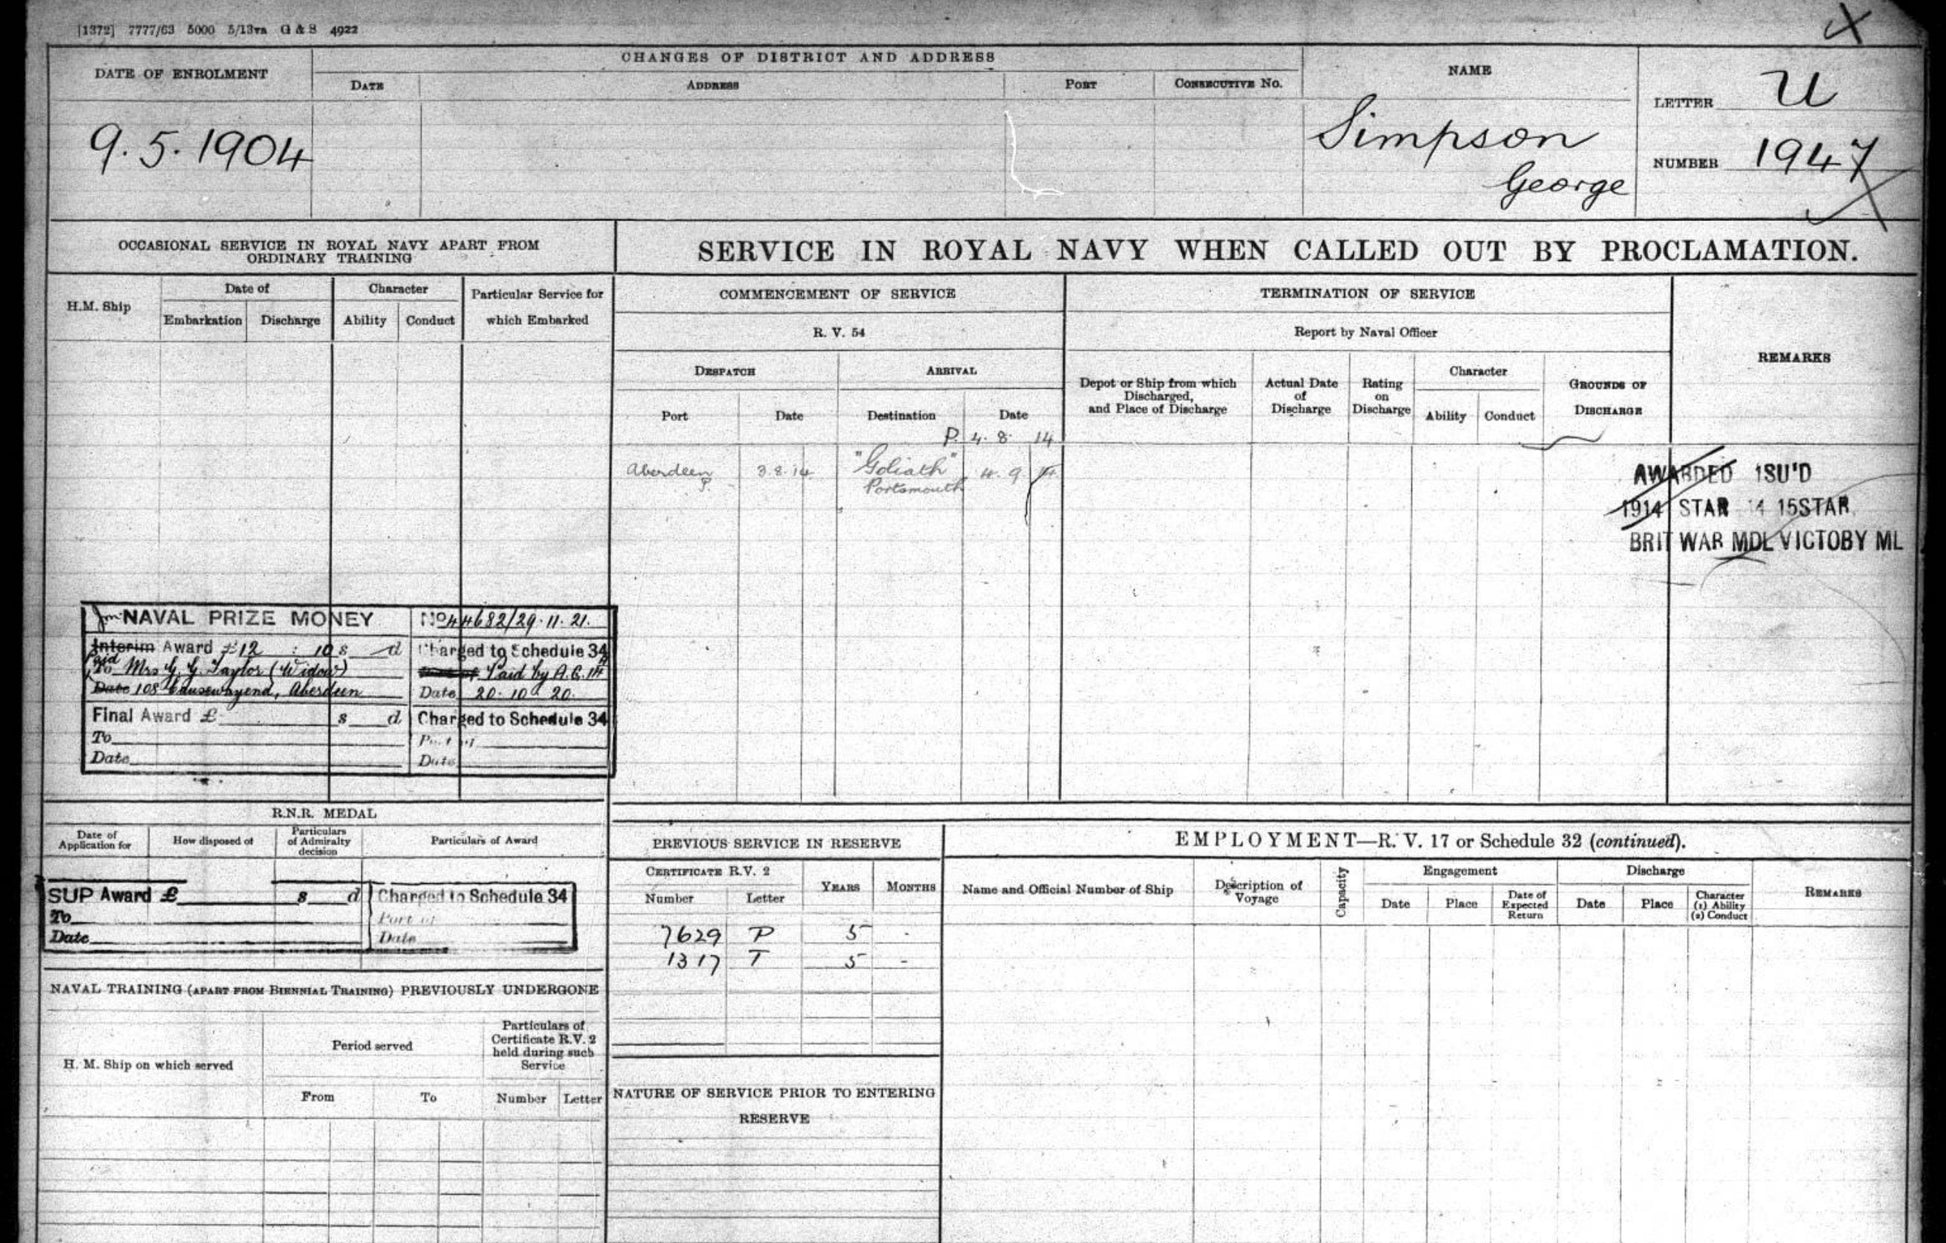 [1372] 7777/63 5000 5/13va G & S 4922
DATE OF ENROLMENT
CHANGES OF DISTRICT AND ADDRESS
DATE ADDRESS PORT CONSECUTIVE No.
NAME
LETTER U
9.5.1904
Simpson
George
NUMBER 1947
OCCASIONAL SERVICE IN ROYAL NAVY APART FROM
ORDINARY TRAINING
H.M. Ship
Date of
Embarkation Discharge
Character
Ability Conduct
Particular Service for
which Embarked
SERVICE IN ROYAL NAVY WHEN CALLED OUT BY PROCLAMATION.
COMMENCEMENT OF SERVICE
R. V. 54
DESPATCH ARRIVAL
Port Date Destination Date
P. 4. 8. 14
Aberdeen 3.8.14 "Goliath" 4. 9
P. Portsmouth
TERMINATION OF SERVICE
Report by Naval Officer
Depot or Ship from which
Discharged,
and Place of Discharge
Actual Date
of
Discharge
Rating
on
Discharge
Character
Ability Conduct
GROUNDS OF
DISCHARGE
REMARKS
AWARDED 1SU'D
1914 STAR 14 15STAR
BRIT WAR MDL VICTOBY ML
NAVAL PRIZE MONEY No 44682/29.11.21.
Interim Award £12 : 10 s d Charged to Schedule 34
To Mrs G. G. Taylor (Widow) Paid by A.G.
Date 108 Causewayend, Aberdeen Date 20. 10 20.
Final Award £ s d Charged to Schedule 34
To Port of
Date Date
R.N.R. MEDAL
Date of
Application for
How disposed of
Particulars
of Admiralty
decision
Particulars of Award
SUP Award £ s d Charged to Schedule 34
To Port of
Date Date
NAVAL TRAINING (APART FROM BIENNIAL TRAINING) PREVIOUSLY UNDERGONE
H. M. Ship on which served
Period served
From To
Particulars of
Certificate R.V. 2
held during such
Service
Number Letter
PREVIOUS SERVICE IN RESERVE
CERTIFICATE R.V. 2
Number Letter
YEARS MONTHS
7629 P 5 -
1317 T 5 -
NATURE OF SERVICE PRIOR TO ENTERING
RESERVE
EMPLOYMENT—R. V. 17 or Schedule 32 (continued).
Name and Official Number of Ship
Description of
Voyage
Capacity
Engagement
Date Place
Date of
Expected
Return
Discharge
Date Place
Character
(1) Ability
(2) Conduct
REMARKS